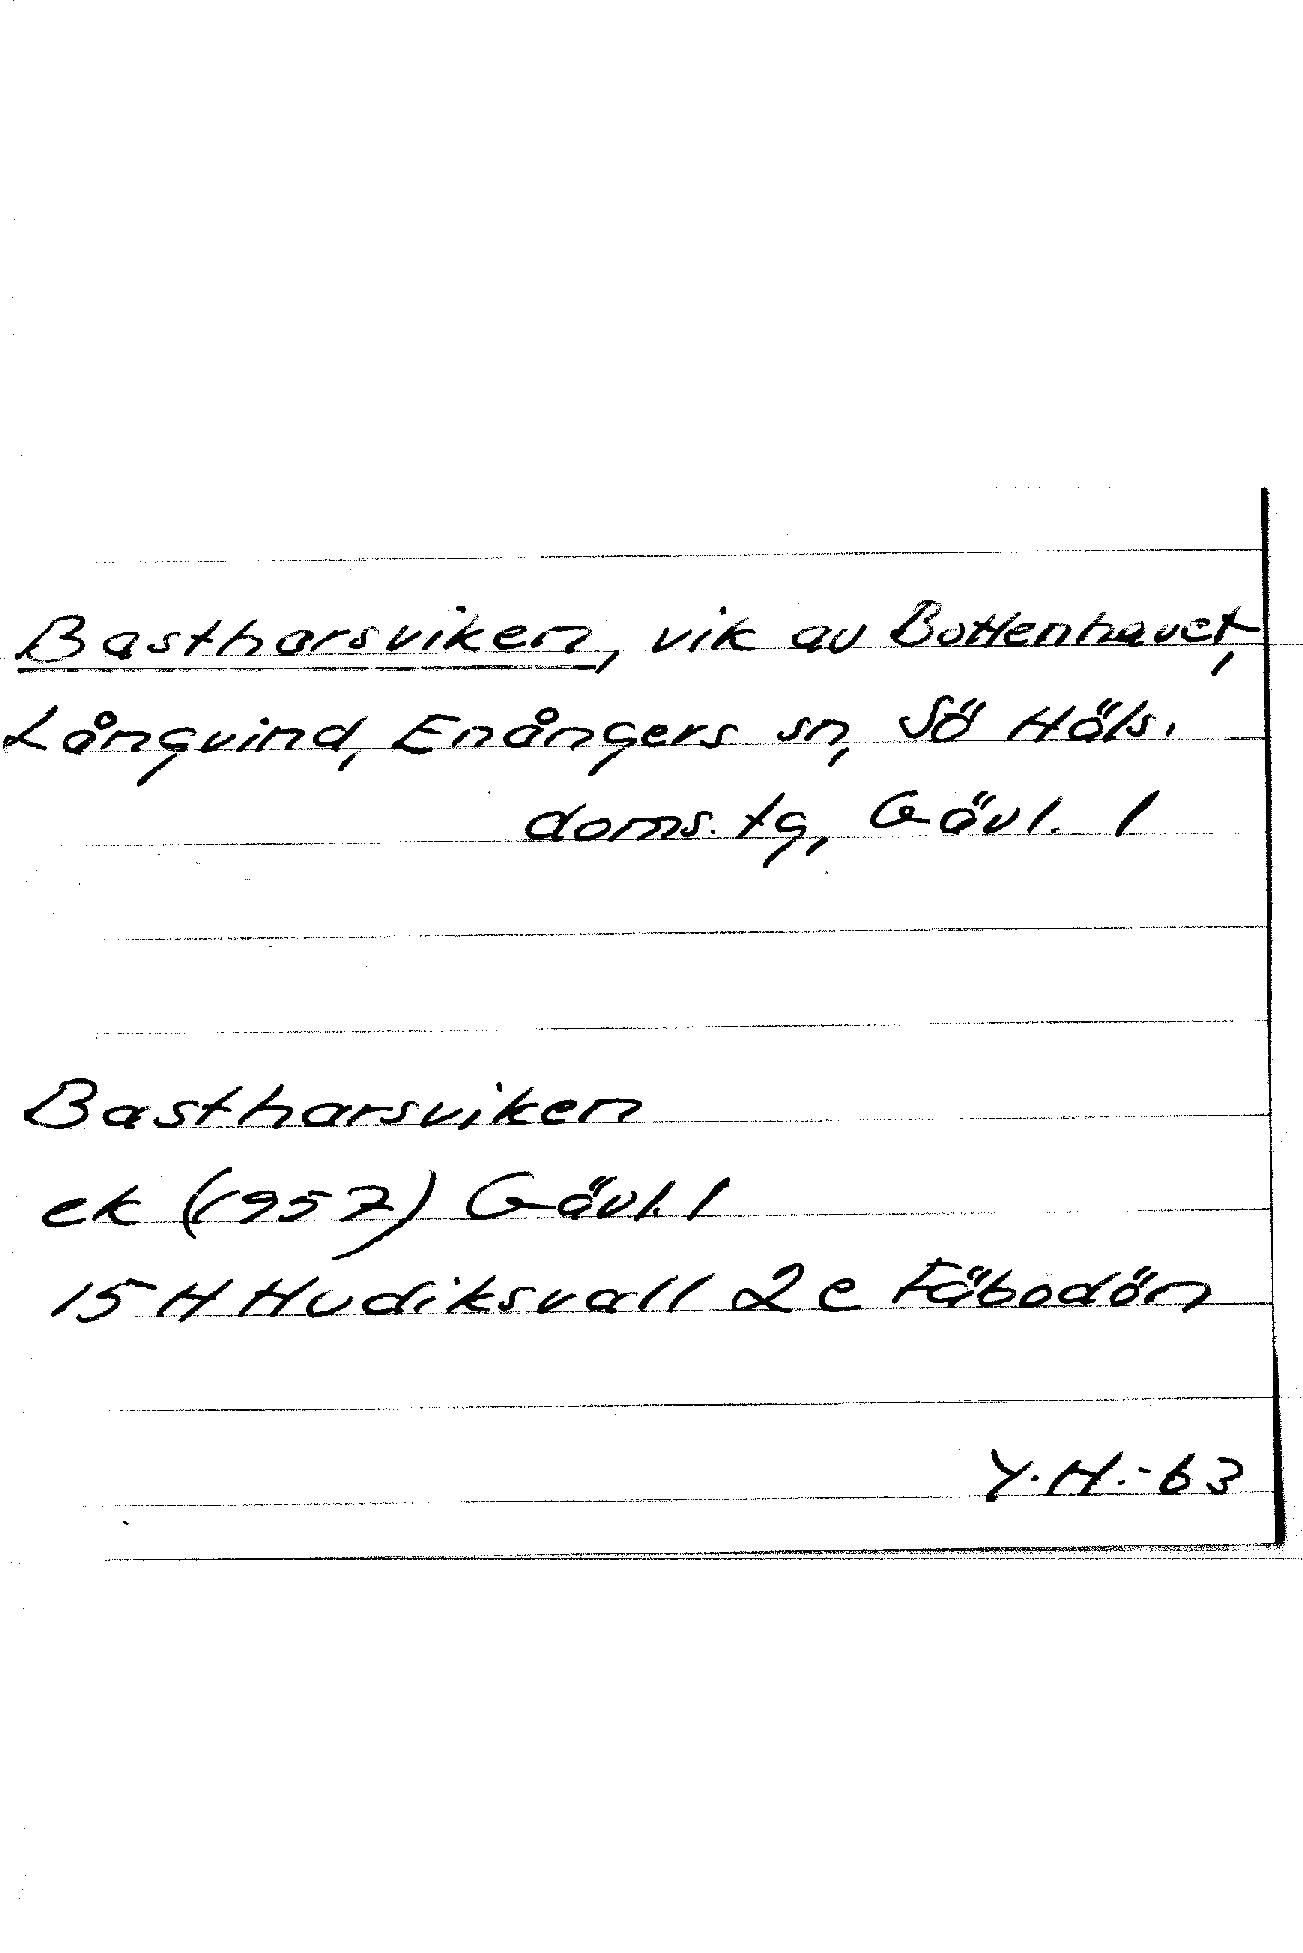 Bastharsviken, vik av Bottenhavet,
Långvind, Enångers sn, Sö Häls.
doms. tg, Gävl. l
Bastharsviken
ek (1957) Gävl. l
15 H Hudiksvall 2 e Fäbodön
Y.H.-63